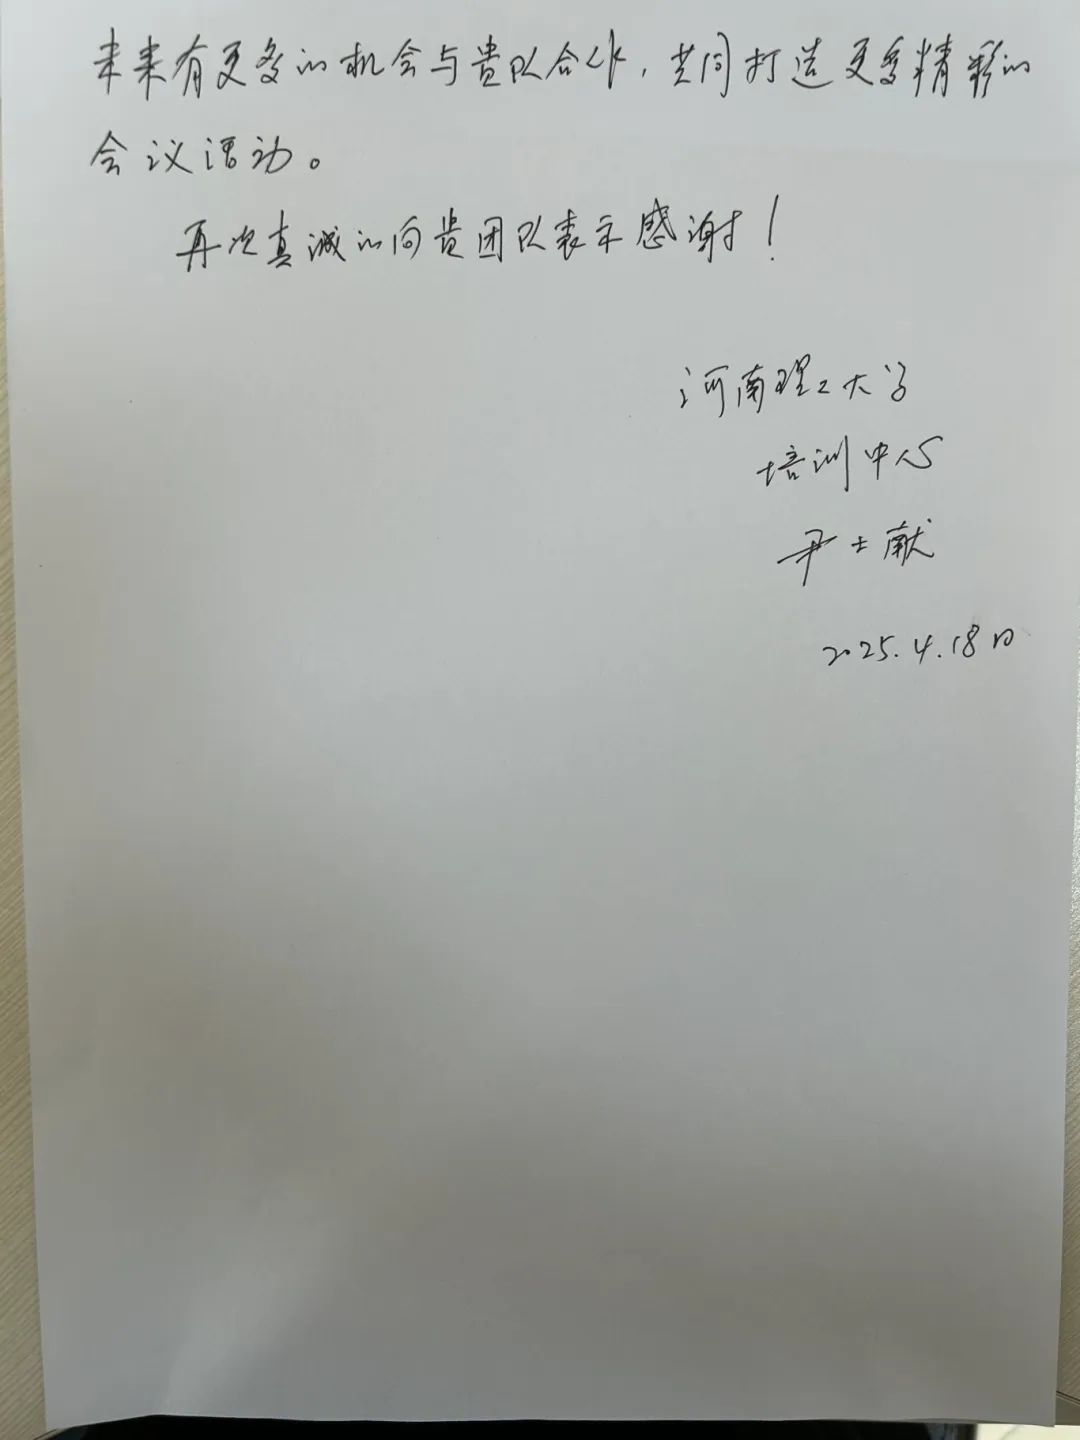 未来有更多的机会与贵队合作,共同打造更多精彩的
会议活动。
再次真诚的向贵团队表示感谢!
河南理工大学
培训中心
尹士献
2025.4.18日